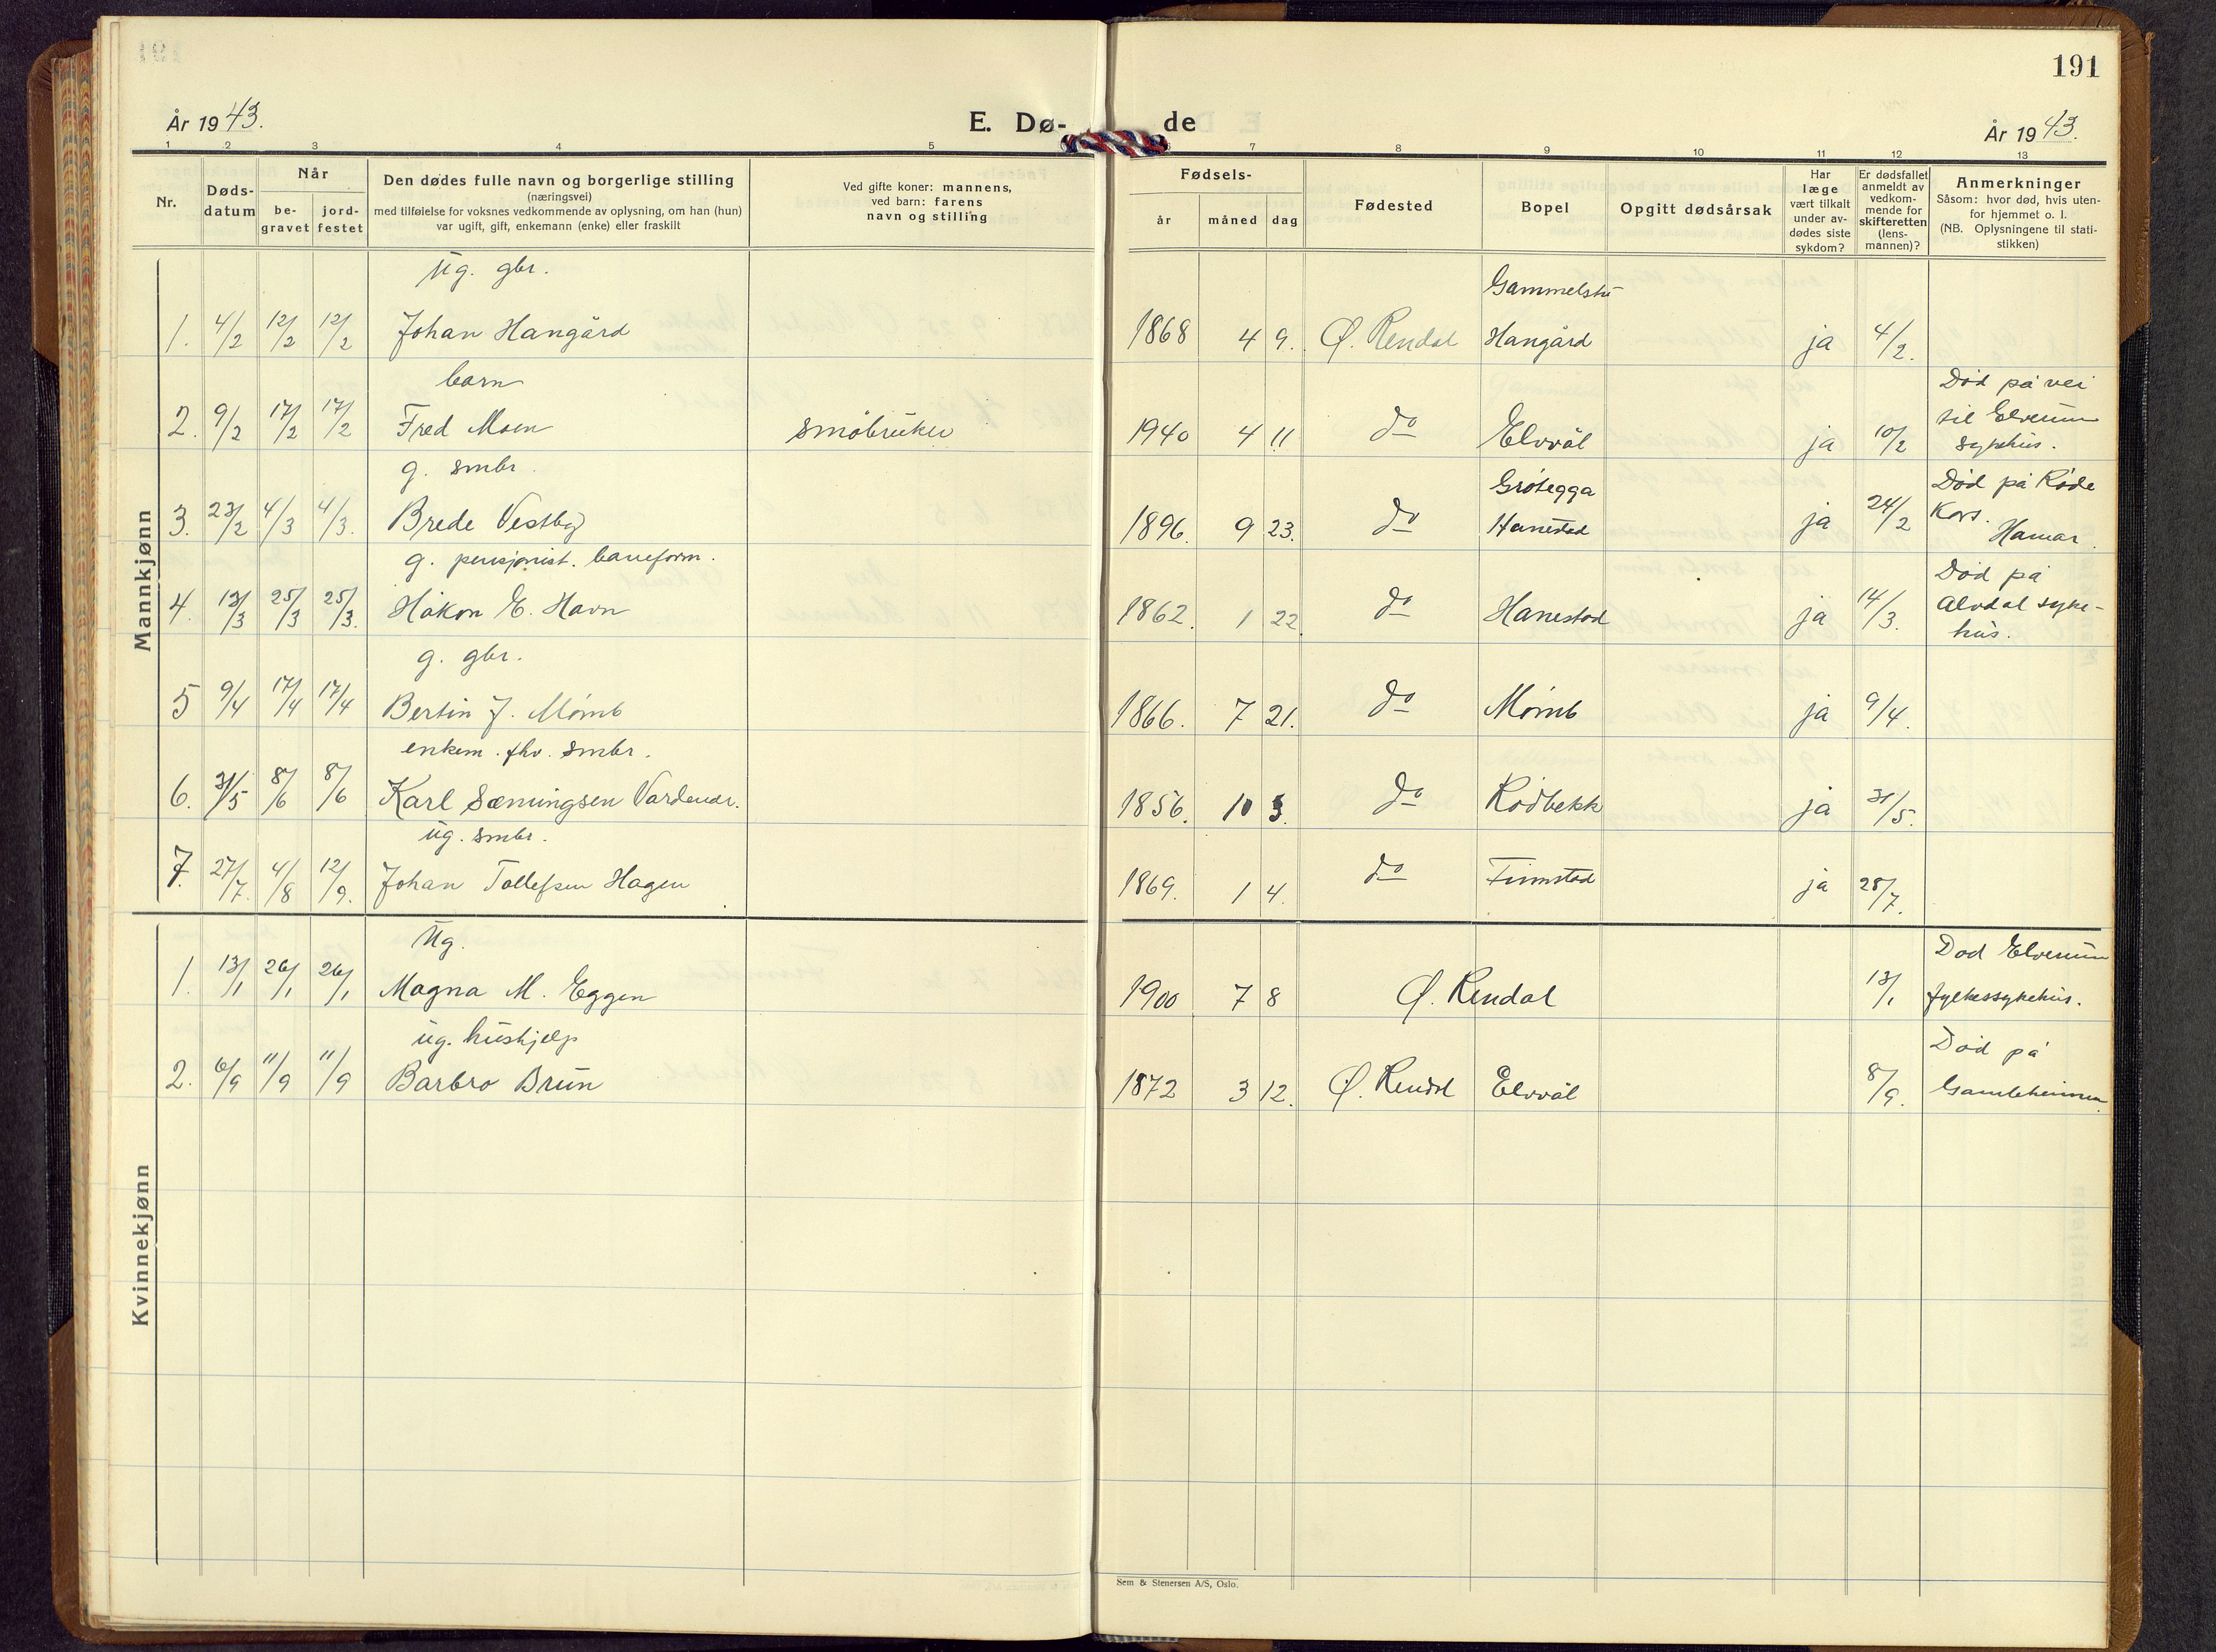 191
År 1943.
E. Dø-
de
År 1943.
1 2 3 4 5 6 7 8 9 10 11 12 13
Nr.
Døds-
datum
Når
be-
gravet
jord-
festet
Den dødes fulle navn og borgerlige stilling
(næringsvei)
med tilføielse for voksnes vedkommende av oplysning, om han (hun)
var ugift, gift, enkemann (enke) eller fraskilt
Ved gifte koner: mannens,
ved barn: farens
navn og stilling
Fødsels-
år måned dag
Fødested
Bopel
Opgitt dødsårsak
Har
læge
vært tilkalt
under av-
dødes siste
sykdom?
Er dødsfallet
anmeldt av
vedkom-
mende for
skifteretten
(lens-
mannen)?
Anmerkninger
Såsom: hvor død, hvis uten-
for hjemmet o. l.
(NB. Oplysningene til stati-
stikken)
Mannkjønn
ug. gbr. Gammelstu
1. 4/2 12/2 12/2 Johan Hangård 1868 4 9. Ø. Rendal Hangård ja 4/2.
barn Død på vei
til Elverum
2. 9/2 17/2 17/2 Fred Moen småbruker 1940 4 11 do Elvvål ja 10/2 sykehus.
g. smbr. Grøtegga Død på Røde
3. 23/2 4/3 4/3. Brede Vestby 1896. 9 23. do Hanestad ja 24/2 Kors.
Hamar.
g. pensjonist. baneform. Død på
4. 13/3 25/3 25/3. Håkon E. Havn 1862. 1 22. do Hanestad ja 14/3. Alvdal syke-
hus.
g. gbr.
5 9/4 17/4 17/4 Bertin J. Mømb 1866. 7 21. do Mømb ja 9/4.
enkem. fhv. smbr.
6. 31/5 8/6 8/6 Karl Sæmingsen Vardendr. 1856. 10 3. do Rødbekk ja 31/5.
ug. smbr.
7. 27/7. 4/8 12/9. Johan Tollefsen Hagen 1869. 1 4. do Finnstad ja 28/7.
Kvinnekjønn
Ug. Død Elverum
1. 13/1 26/1 26/1 Magna M. Eggen 1900 7 8 Ø. Rendal 13/1 fylkessykehus.
ug. hushjelp Død på
2. 6/9 11/9 11/9 Barbro Brun 1872 3 12. Ø. Rendal Elvvål 8/9. Gamleheimen.
Sem & Stenersen A/S, Oslo.